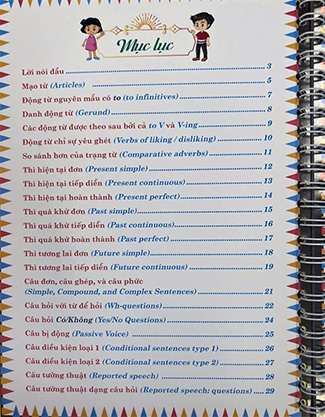 Mục lục
Lời nói đầu 3
Mạo từ (Articles) 5
Động từ nguyên mẫu có to (to infinitives) 7
Danh động từ (Gerund) 8
Các động từ được theo sau bởi cả to V và V-ing 9
Động từ chỉ sự yêu ghét (Verbs of liking / disliking) 10
So sánh hơn của trạng từ (Comparative adverbs) 11
Thì hiện tại đơn (Present simple) 12
Thì hiện tại tiếp diễn (Present continuous) 13
Thì hiện tại hoàn thành (Present perfect) 14
Thì quá khứ đơn (Past simple) 15
Thì quá khứ tiếp diễn (Past continuous) 16
Thì quá khứ hoàn thành (Past perfect) 17
Thì tương lai đơn (Future simple) 18
Thì tương lai tiếp diễn (Future continuous) 19
Câu đơn, câu ghép, và câu phức
(Simple, Compound, and Complex Sentences) 21
Câu hỏi với từ để hỏi (Wh-questions) 22
Câu hỏi Có/Không (Yes/No Questions) 24
Câu bị động (Passive Voice) 25
Câu điều kiện loại 1 (Conditional sentences type 1) 26
Câu điều kiện loại 2 (Conditional sentences type 2) 27
Câu tường thuật (Reported speech) 28
Câu tường thuật dạng câu hỏi (Reported speech: questions) 29